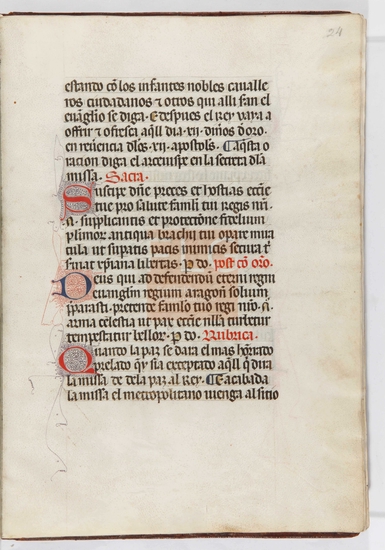 24
estando cõ los infantes nobles caualle
ros ciudadanos τ otros qui alli fan el
euãgelio se diga · E despues el Rey vaya a
offrir τ ofresca aq̃ll dia · vii · dineros d'oro ·
en reuerencia dlos · xii · apostols · Caq̃sta o
racion diga el arceuispe en la secreta dla
missa · Sacra ·
Suscipe dñe preces et hostias eccl̃ie
tue pro salute famli tui regis nñ ·
· ñ · supplicantis et protectione fidelium
pplorum antiqua brachij tui opare mira
cula ut supatis pacis inimicis secura t̃
seruiat xp̃iana libertas · P do · post cõ oro ·
Deus qui ad defendendũ eterni regni
euangliuȝ regium aragon̄ solium
p̃parasti · pretende famlo tuo regi nr̃o · ñ ·
arma celestia ut pax eccl̃ie nlla turbetur
tempestatur bellor · P do · Rubrica ·
Quanto la paz se dara el mas hõrrato
prelato q̃ y sia exceptado aq̃ll q̃ dira
la missa de dela paz al Rey · C E acabada
la missa el metropolitano venga al sitio